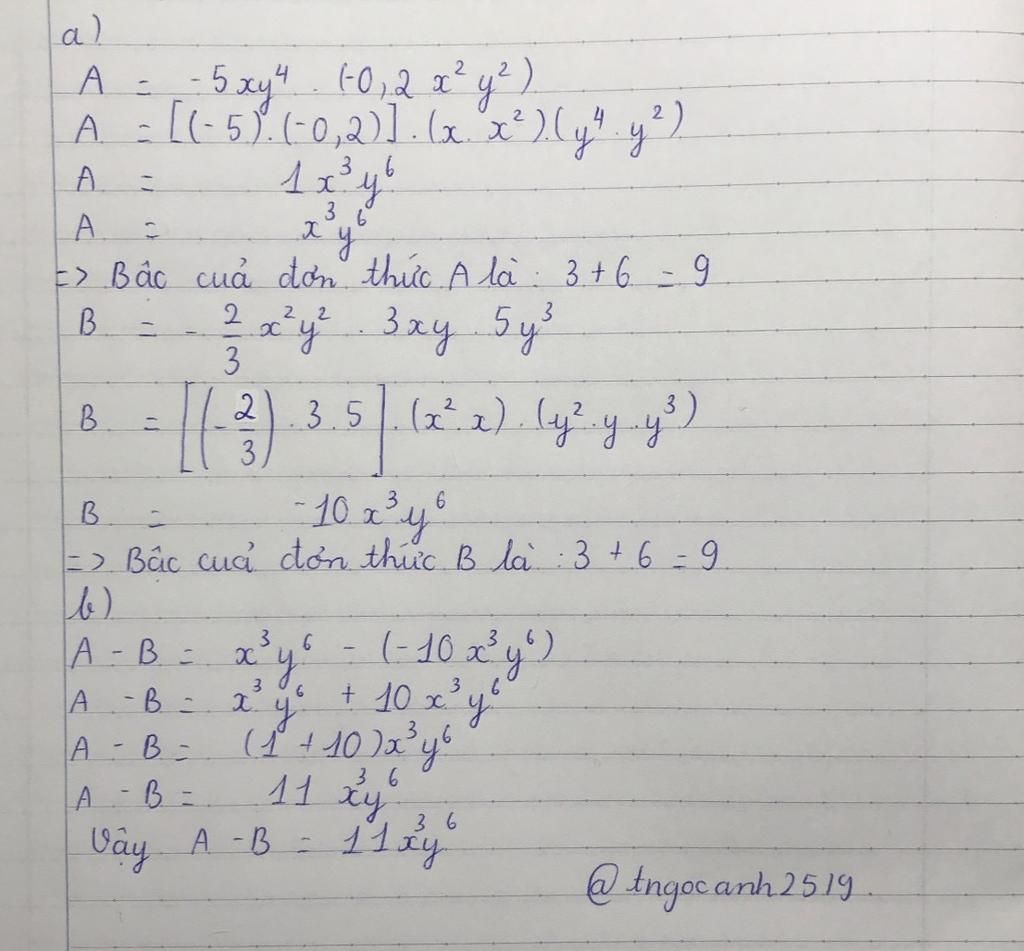 a)
A = -5xy⁴ . (-0,2 x² y²)
A = [(-5).(-0,2)] . (x . x²)(y⁴ . y²)
A = 1x³y⁶
A = x³y⁶
=> Bậc cuả đơn thức A là : 3 + 6 = 9
B = - 2/3 x²y² . 3xy . 5y³
B = [(-2/3) . 3 . 5] . (x² . x) . (y² . y . y³)
B = -10x³y⁶
=> Bậc cuả đơn thức B là : 3 + 6 = 9
b)
A - B = x³y⁶ - (-10x³y⁶)
A - B = x³y⁶ + 10x³y⁶
A - B = (1 + 10)x³y⁶
A - B = 11 x³y⁶
Vậy A - B = 11x³y⁶
@tngocanh2519.